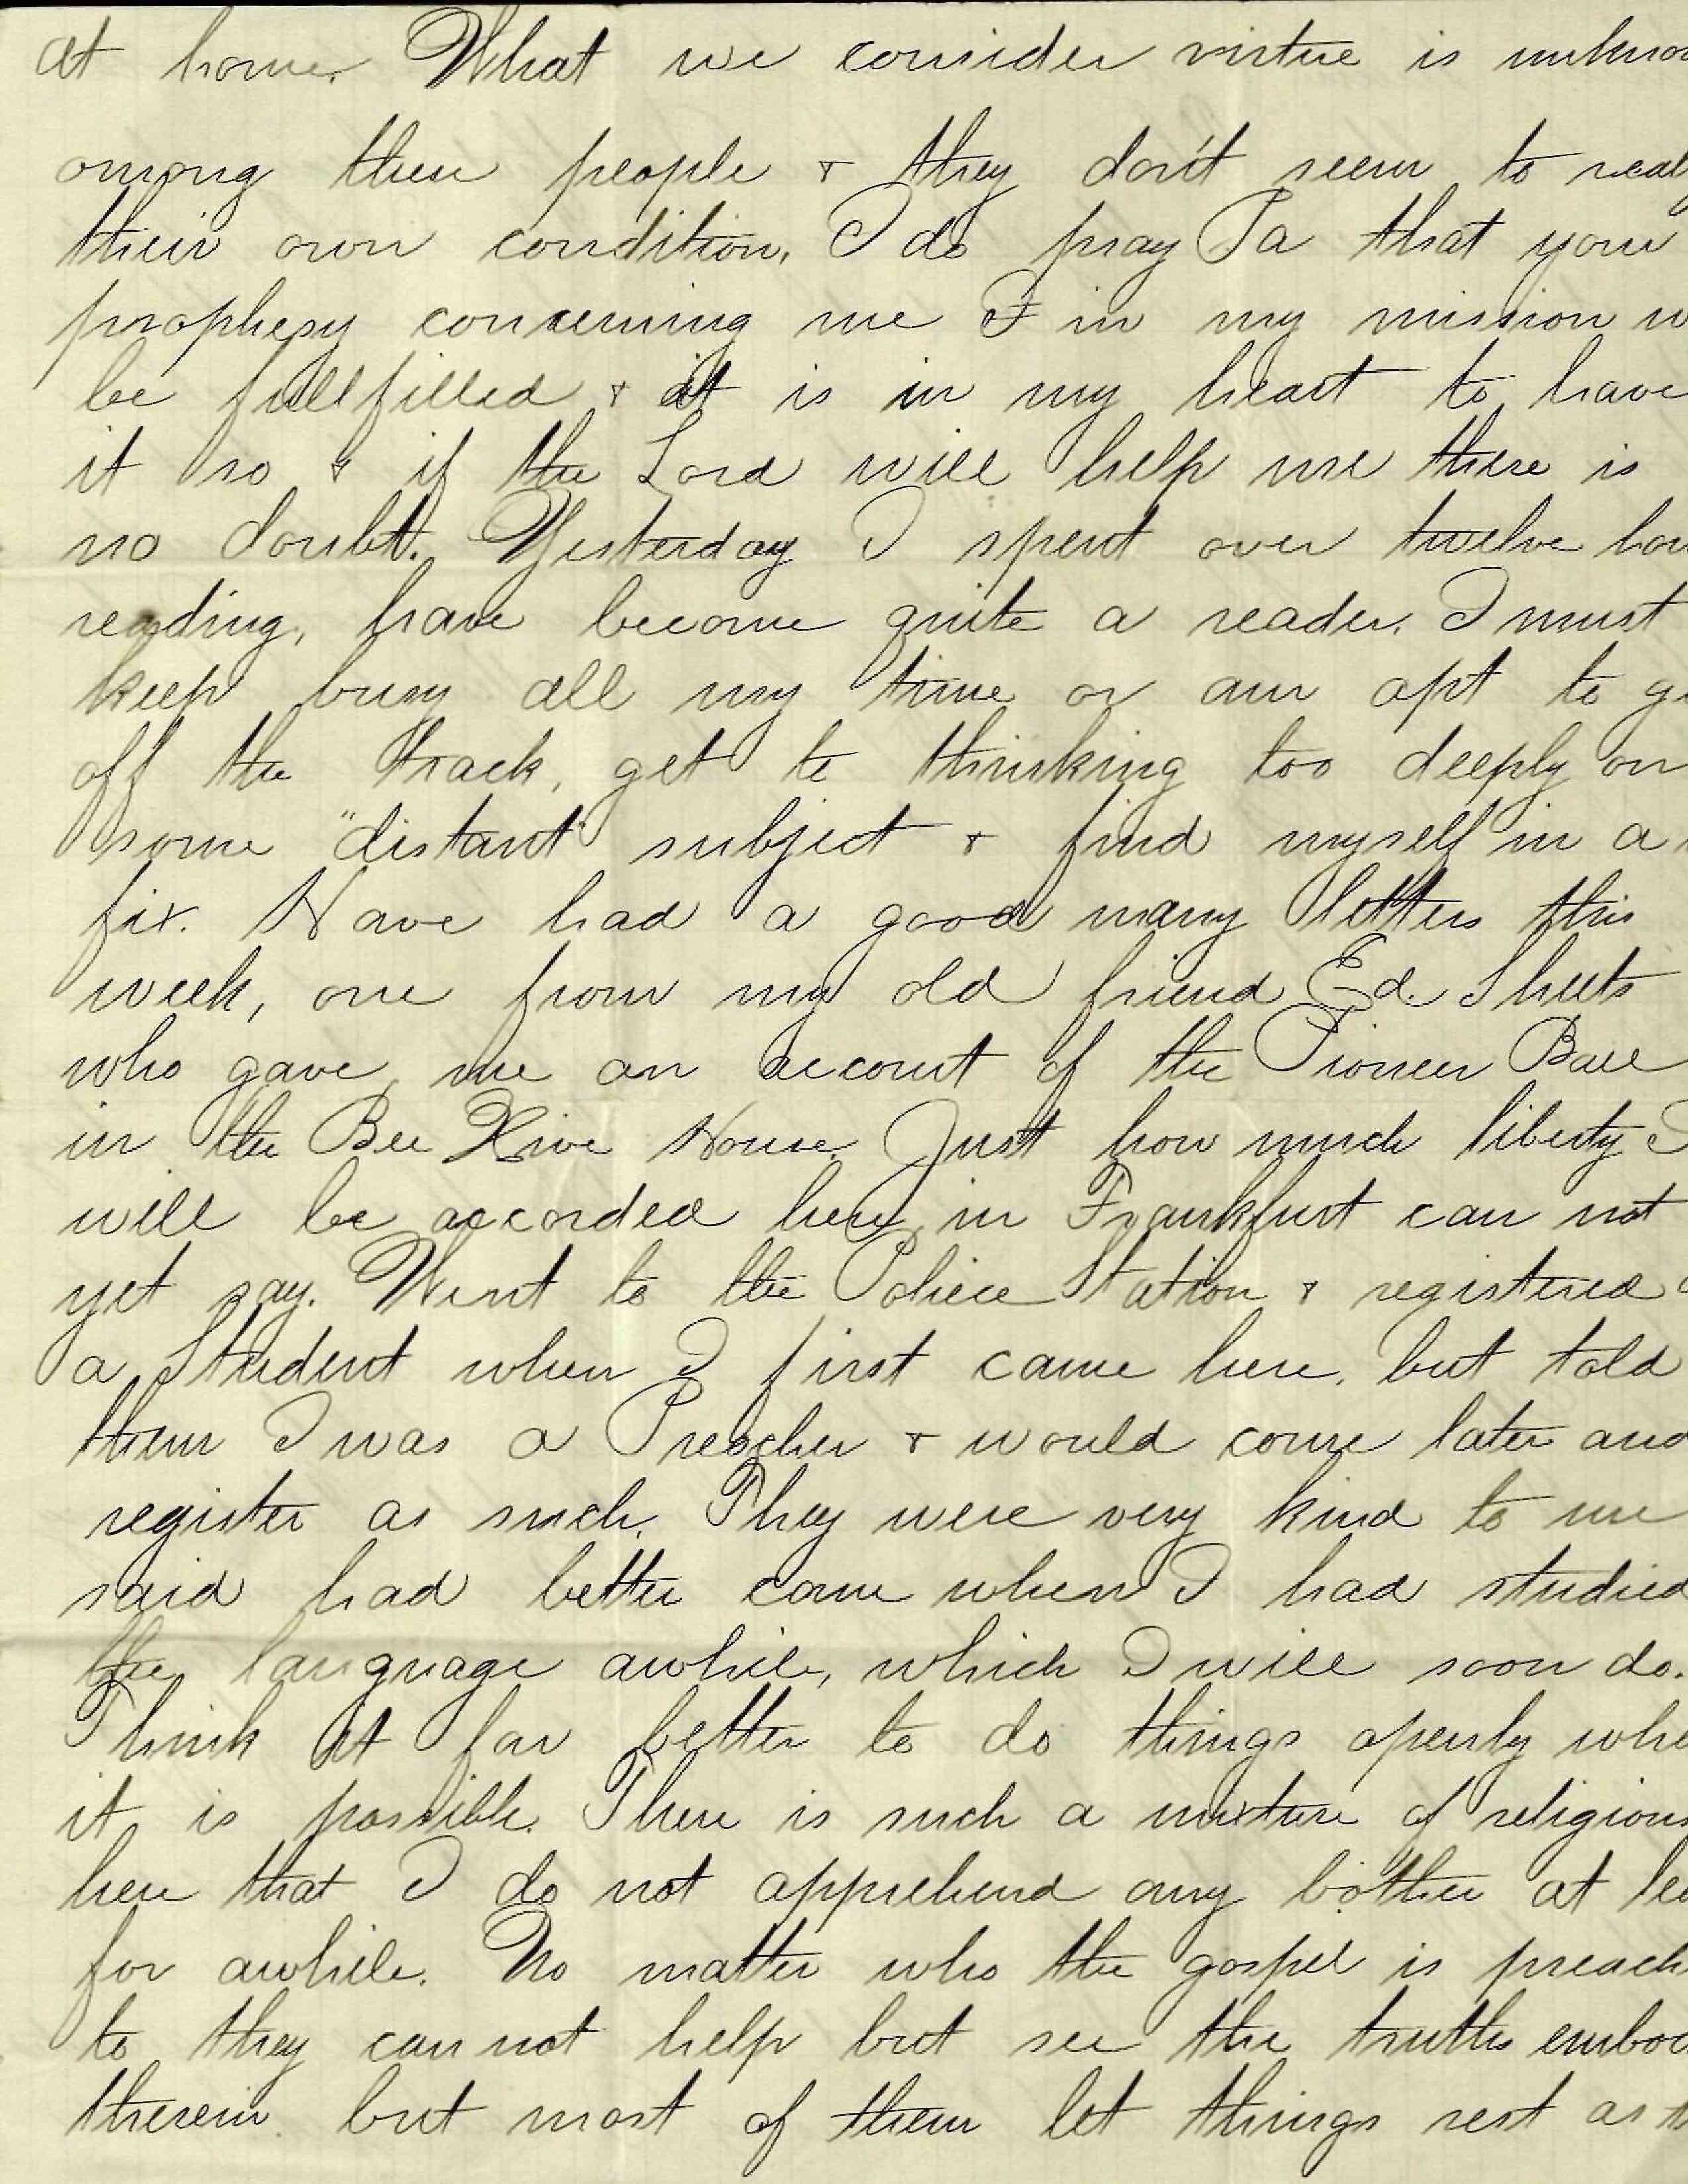 at home. What we consider virtue is unknow
among these people & they don't seem to real
their own condition. I do pray Pa that your
prophesy concerning me & in my mission w
be fullfilled & it is in my heart to have
it so & if the Lord will help me there is
no doubt. Yesterday I spent over twelve hou
reading, have become quite a reader. I must
keep busy all my time or am apt to ge
off the track, get to thinking too deeply on
some "distant" subject & find myself in a
fix. Have had a good many letters this
week, one from my old friend Ed. Sheets
who gave me an account of the Pioneer Ball
in the Bee Hive House. Just how much liberty I
will be accorded here in Frankfurt can not
yet say. Went to the Police Station & registered a
a Student when I first came here, but told
them I was a Preacher & would come later and
register as such. They were very kind to me
said had better come when I had studied
the language awhile, which I will soon do.
Think it far better to do things openly whe
it is possible. There is such a mixture of religions
here that I do not apprehend any bother at lea
for awhile. No matter who the gospel is preach
to they can not help but see the truths embod
therein. but most of them let things rest as